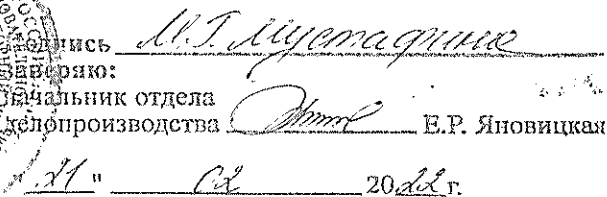 Подпись М.Г. Мустафина
Заверяю:
начальник отдела
делопроизводства Е.Р. Яновицкая
"21" 02 2022 г.